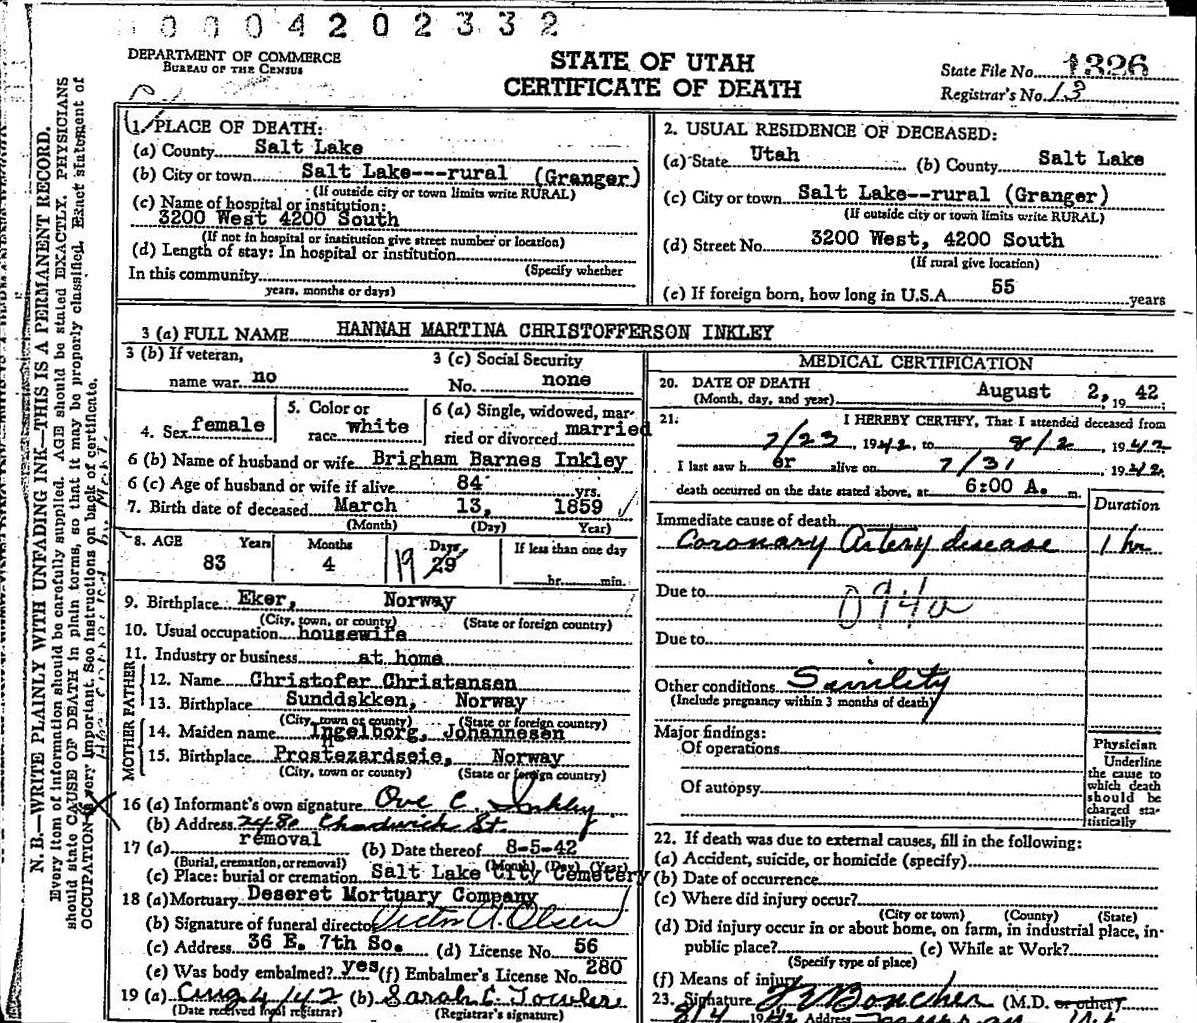 0004202332
DEPARTMENT OF COMMERCE
BUREAU OF THE CENSUS
STATE OF UTAH
CERTIFICATE OF DEATH
State File No. 1326
Registrar's No. 13
N. B.—WRITE PLAINLY WITH UNFADING INK—THIS IS A PERMANENT RECORD.
Every item of information should be carefully supplied. AGE should be stated EXACTLY. PHYSICIANS
should state CAUSE OF DEATH in plain terms, so that it may be properly classified. Exact statement of
OCCUPATION is very important. See instructions on back of certificate.
1. PLACE OF DEATH:
(a) County Salt Lake
(b) City or town Salt Lake---rural (Granger)
(If outside city or town limits write RURAL)
(c) Name of hospital or institution:
3200 West 4200 South
(If not in hospital or institution give street number or location)
(d) Length of stay: In hospital or institution
(Specify whether
In this community
years, months or days)
2. USUAL RESIDENCE OF DECEASED:
(a) State Utah (b) County Salt Lake
(c) City or town Salt Lake--rural (Granger)
(If outside city or town limits write RURAL)
(d) Street No. 3200 West, 4200 South
(If rural give location)
(e) If foreign born, how long in U.S.A. 55 years
3 (a) FULL NAME HANNAH MARTINA CHRISTOFFERSON INKLEY
3 (b) If veteran,
name war no
3 (c) Social Security
No. none
4. Sex female
5. Color or
race white
6 (a) Single, widowed, mar-
ried or divorced married
6 (b) Name of husband or wife Brigham Barnes Inkley
6 (c) Age of husband or wife if alive 84 yrs.
7. Birth date of deceased March 13, 1859
(Month) (Day) Year)
8. AGE Years Months Days If less than one day
83 4 19 29 hr. min.
9. Birthplace Eker, Norway
(City, town, or county) (State or foreign country)
10. Usual occupation housewife
11. Industry or business at home
FATHER
12. Name Christofer Christensen
13. Birthplace Sunddskken, Norway
(City, town or county) (State or foreign country)
MOTHER
14. Maiden name Ingelborg, Johannesen
15. Birthplace Prostezardseie, Norway
(City, town, or county) (State or foreign country)
16 (a) Informant's own signature Ove C. Inkley
(b) Address 2480 Chadwick St.
17 (a) removal (b) Date thereof 8-5-42
(Burial, cremation, or removal) (Month) (Day) (Year)
(c) Place: burial or cremation Salt Lake City Cemetery
18 (a) Mortuary Deseret Mortuary Company
(b) Signature of funeral director Victor A. Olsen
(c) Address 36 E. 7th So. (d) License No. 56
(e) Was body embalmed? yes (f) Embalmer's License No. 280
19 (a) Aug 4/42 (b) Sarah E.
(Date received local registrar) (Registrar's signature)
MEDICAL CERTIFICATION
20. DATE OF DEATH
(Month, day, and year) August 2, 19 42
21. I HEREBY CERTIFY, That I attended deceased from
7/23, 1942, to 8/2, 1942
I last saw h er alive on 7/31, 1942.
death occurred on the date stated above, at 6:00 A. m.
Duration
Immediate cause of death
Coronary Artery disease 1 hr
Due to 094a
Due to
Other conditions Senility
(Include pregnancy within 3 months of death)
Major findings:
Of operations
Of autopsy
Physician
Underline
the cause to
which death
should be
charged sta-
tistically
22. If death was due to external causes, fill in the following:
(a) Accident, suicide, or homicide (specify)
(b) Date of occurrence
(c) Where did injury occur?
(City or town) (County) (State)
(d) Did injury occur in or about home, on farm, in industrial place, in-
public place? (e) While at Work?
(Specify type of place)
(f) Means of injury
23. Signature (M.D. or other)
8/4 1942 Address